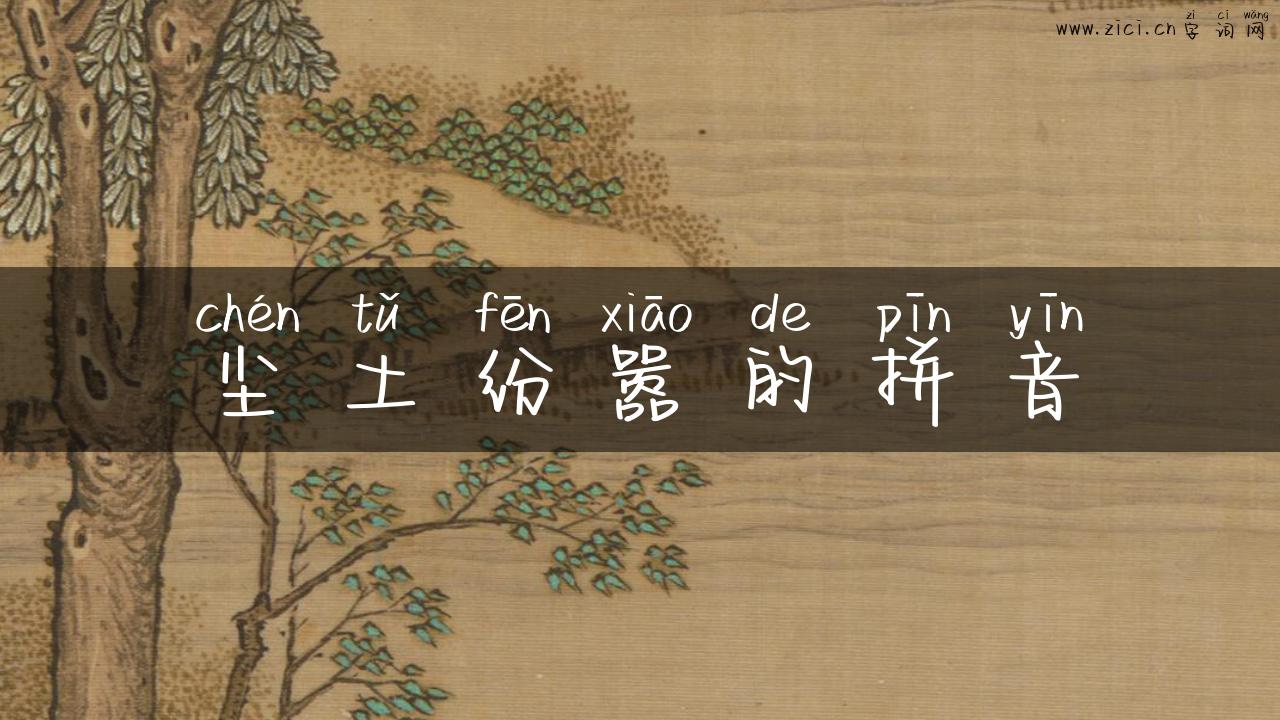 zì cí wǎng
www.zici.cn 字词网
chén tǔ fēn xiāo de pīn yīn
尘土纷嚣的拼音